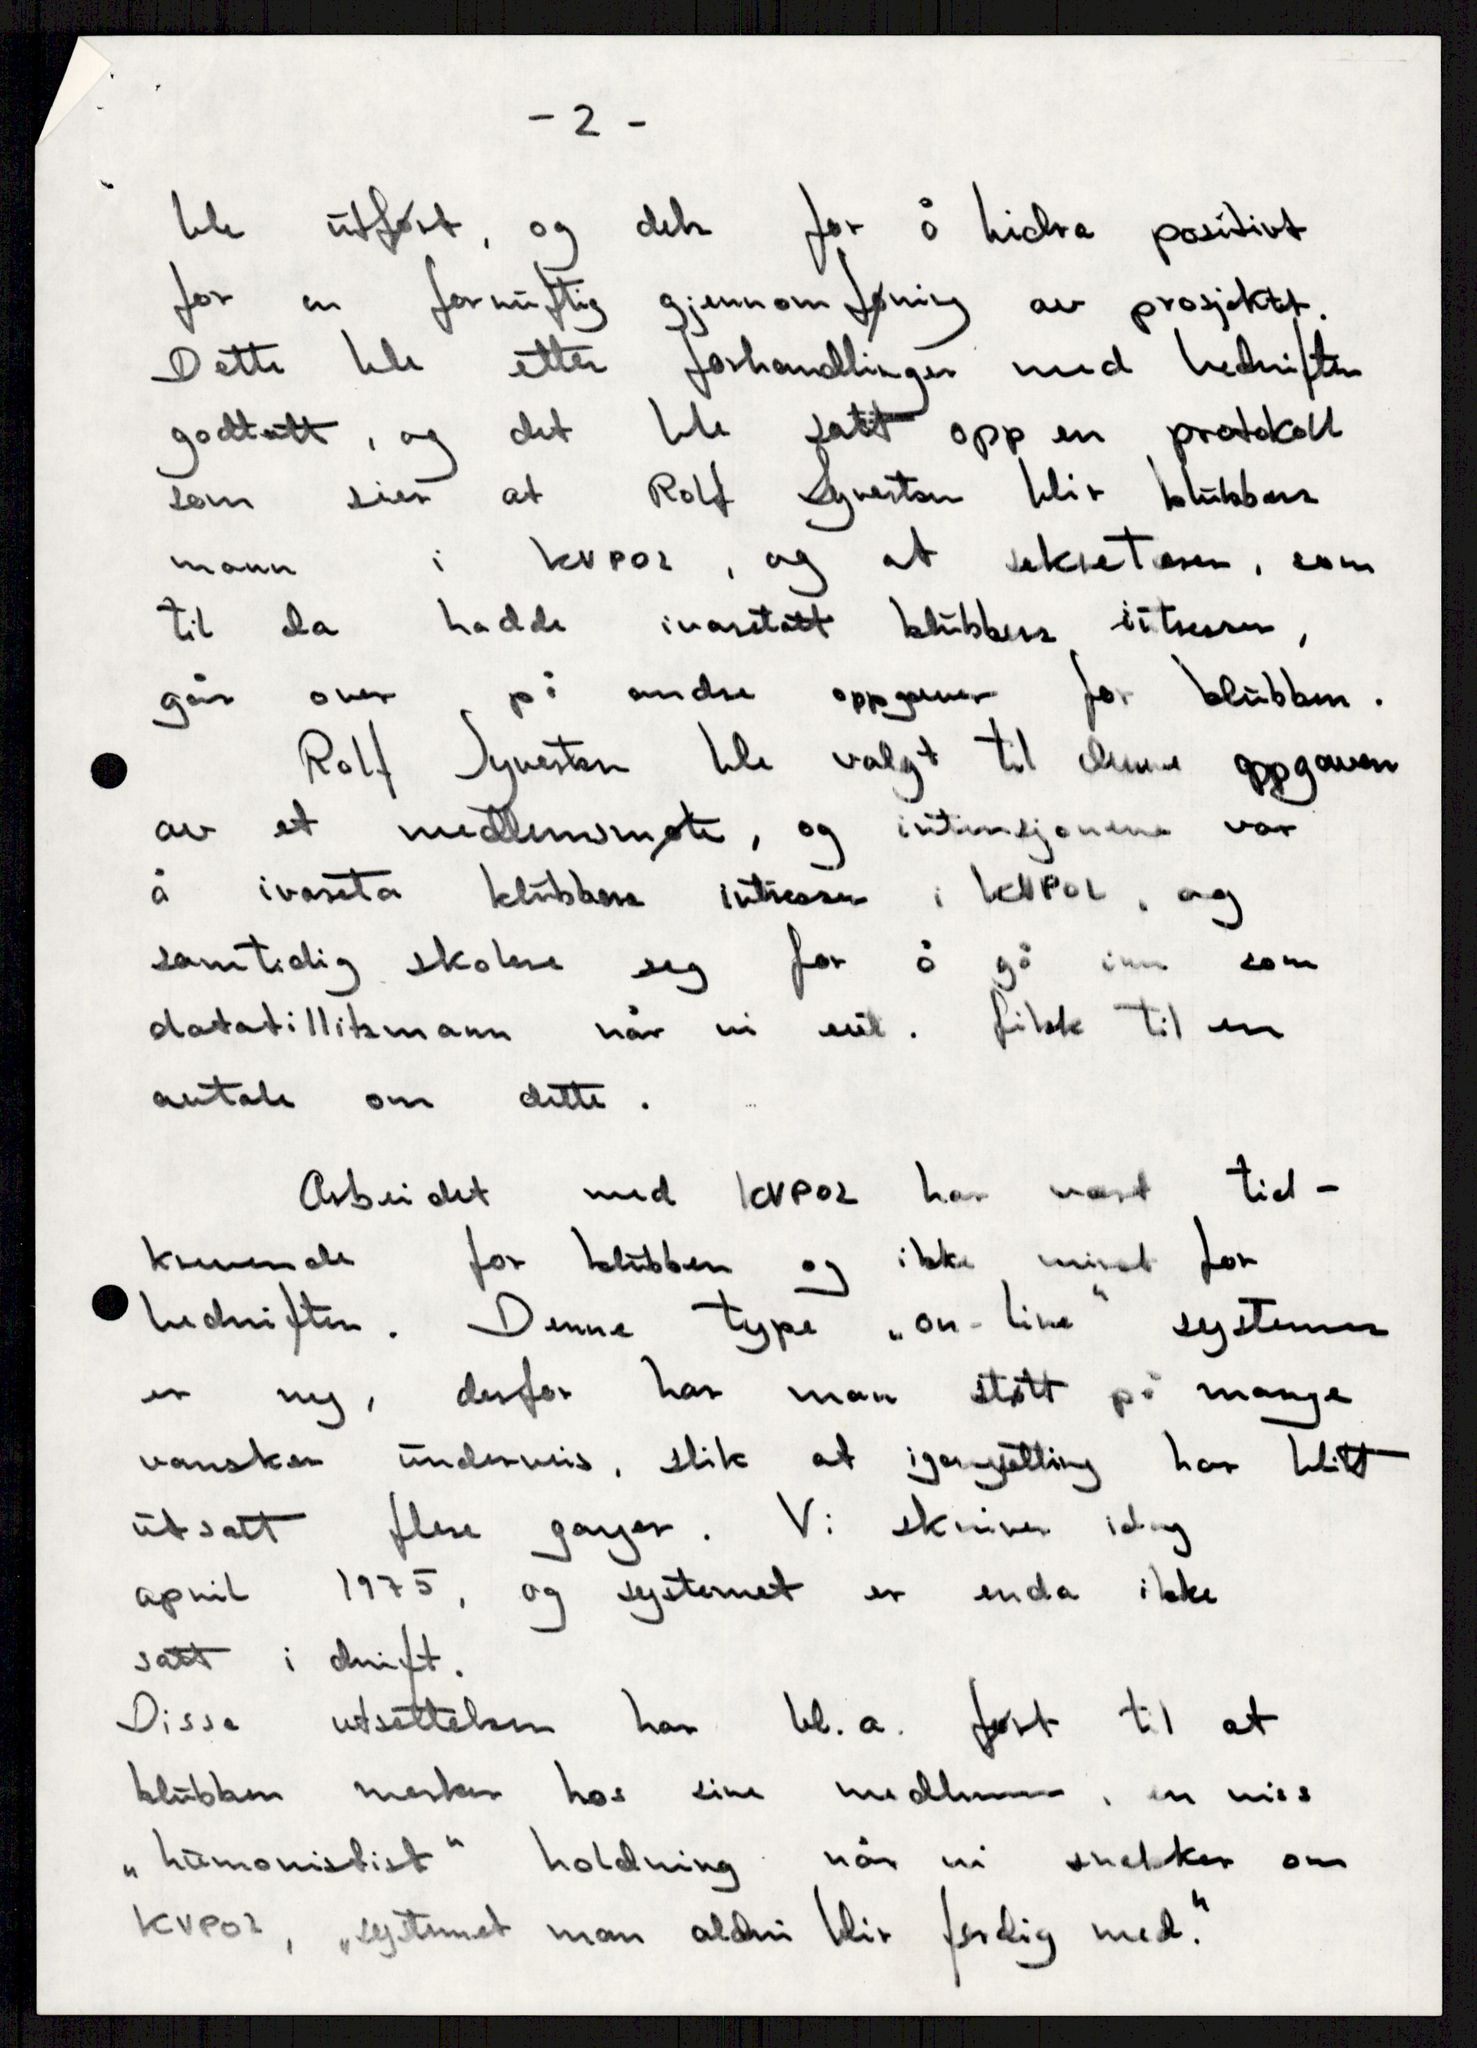 - 2 -
ble utført, og dels for å bidra positivt
for en fornuftig gjennomføring av prosjektet.
Dette ble etter forhandlinger med bedriften
godtatt, og det ble satt opp en protokoll
som sier at Rolf Syversten blir klubbens
mann i KVPO2, og at sekretæren, som
til da hadde ivaretatt klubbens intresser,
går over på andre oppgaver for klubben.
Rolf Syversten ble valgt til denne oppgaven
av et medlemsmøte, og intensjonene var
å ivareta klubbens intresser i KVPO2, og
samtidig skolere seg for å gå inn som
datatillitsmann når vi evt. fikk til en
avtale om dette.
Arbeidet med KVPO2 har vært tid-
krevende for klubben og ikke minst for
bedriften. Denne type „on-line" systemer
er ny, derfor har man støtt på mange
vansker underveis, slik at igangsetting har blitt
utsatt flere ganger. Vi skriver idag
april 1975, og systemet er enda ikke
satt i drift.
Disse utsettelsen har bl.a. ført til at
klubben merker hos sine medlemmer, en viss
„humoristist" holdning når vi snakker om
KVPO2, „systemet man aldri blir ferdig med."